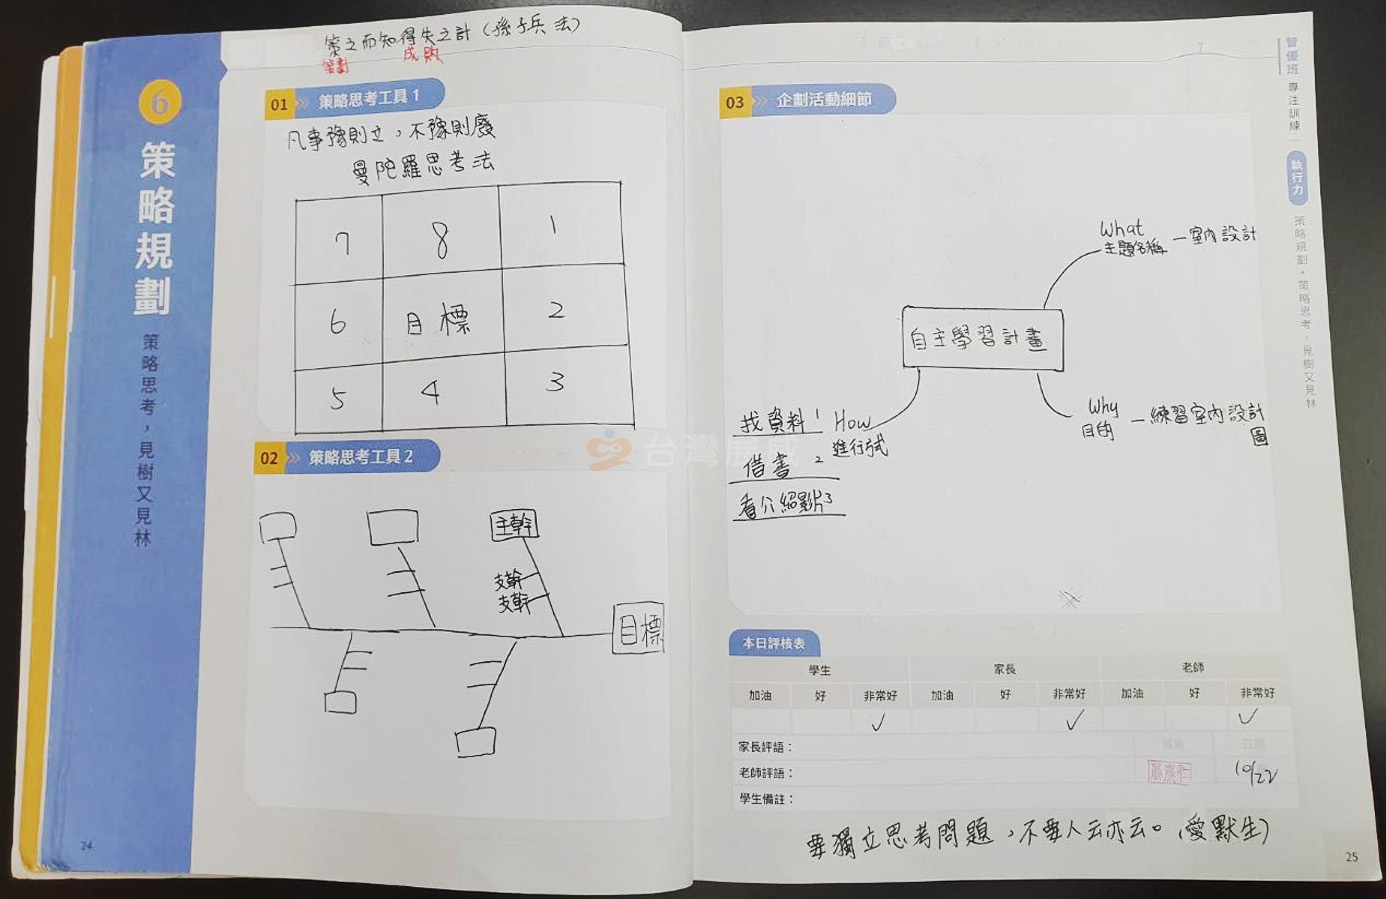 策之而知得失之計(孫子兵法)
策劃
成敗
6
策略規劃
策略思考,見樹又見林
01
策略思考工具1
凡事豫則立,不豫則廢
曼陀羅思考法
7 8 1
6 目標 2
5 4 3
02
策略思考工具2
主幹
支幹
支幹
目標
24
03
企劃活動細節
What
主題名稱
室內設計
自主學習計畫
Why
目的
練習室內設計
圖
How
進行式
找資料 1
借書 2
看介紹影片 3
台灣展成
本日評核表
學生 家長 老師
加油 好 非常好 加油 好 非常好 加油 好 非常好
✓ ✓ ✓
家長評語:
老師評語:
10/22
學生備註:
要獨立思考問題,不要人云亦云。(愛默生)
25
專注訓練
執行力
策略規劃・策略思考,見樹又見林